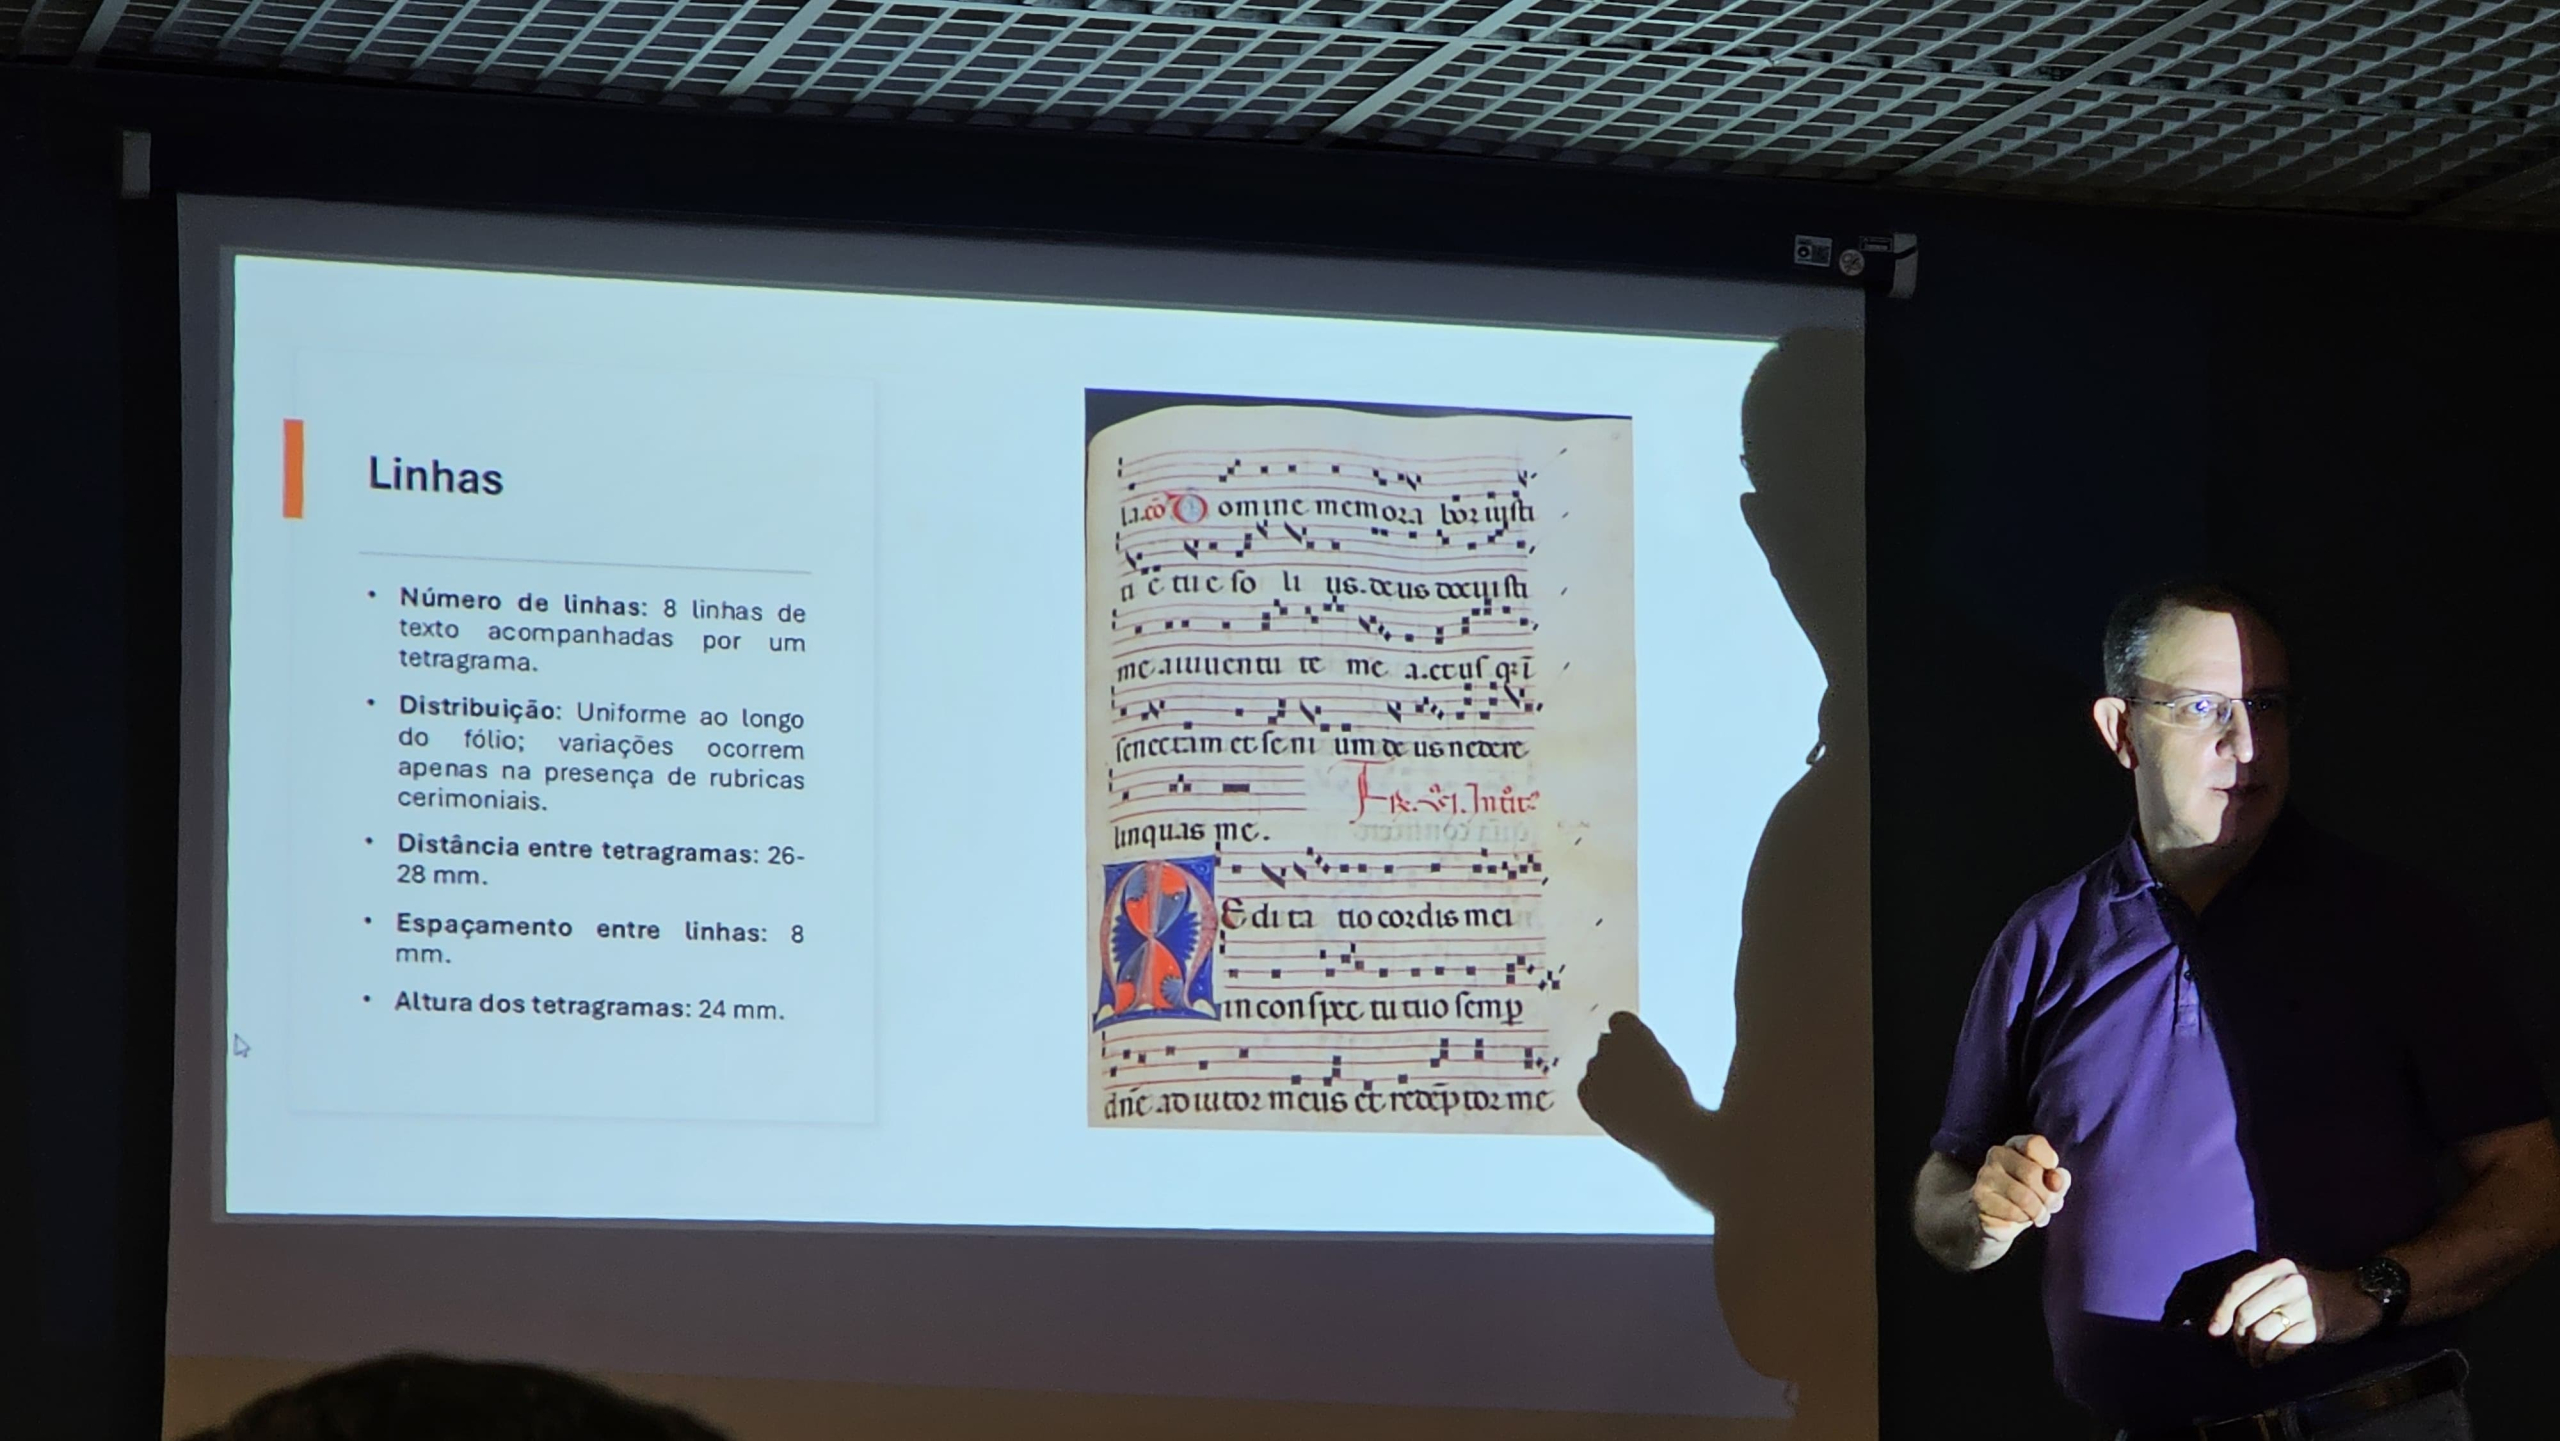 Linhas
• Número de linhas: 8 linhas de
texto acompanhadas por um
tetragrama.
• Distribuição: Uniforme ao longo
do fólio; variações ocorrem
apenas na presença de rubricas
cerimoniais.
• Distância entre tetragramas: 26-
28 mm.
• Espaçamento entre linhas: 8
mm.
• Altura dos tetragramas: 24 mm.
la.cō Domine memora bor iusti
ti e tu e so li us. deus docuisti
me a iuuentu te me a. et usq; ī
senectam et seni um de us ne dere
linquas me.
Edi ta tio cordis mei
in conspec tu tuo semp
dn̄e ad iutor meus et redēp tor me